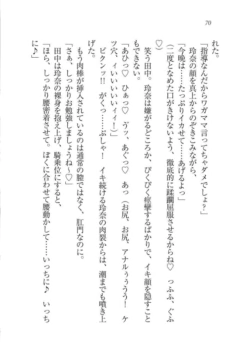 70
れた。
「指導なんだからワガママ言ってちゃダメでしょ?」
玲奈の顔を真上からのぞきこみながら、
「今晩は……たっぷりイカせて……あげるよっ」
(二度となめた口がきけないぐらい、徹底的に蹂躙屈服させるからね♡ っふふ、ぐふ
笑う田中。玲奈は嫌がるどころか、ぴくぴく痙攣するばかりで、イキ顔を隠すこと
「あひっ♡ ひぁっ♡ ヴァ、あぐっ♡ あっ
ツ穴。ィいいいいいいィィ!」
ビクンッ!! がくっ……ぷしゃ! イキ続ける玲奈の肉裂からは、潮までも噴き上
げた。
もう肉棒が挿入されているのは通常の膣ではなく、肛門なのに。
「さぁ、しっかりお勉強しましょうね〜♡」
田中は玲奈の裸身を抱え上げ、騎乗位にすると、
「ほら、しっかり腰密着させて。ぼくに合わせて腰動かして……いっちに♪ いっち
に♪」